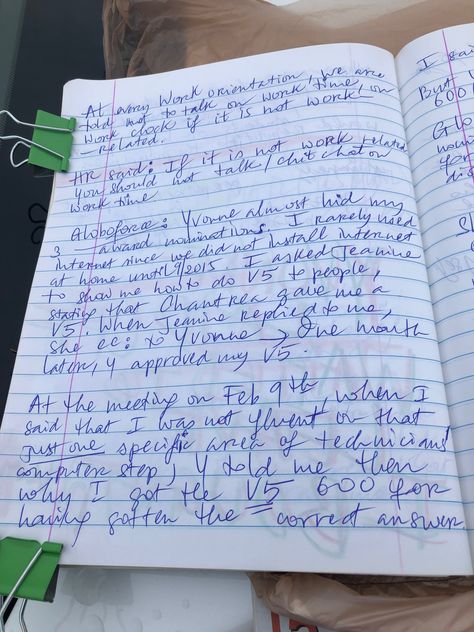 At every work orientation, we are
told not to talk on work time/on
work clock if it is not work/
related.
HR said: If it is not work related
you should not talk/chitchat on
work time
Globoforce: Yvonne almost hid my
3 award nominations. I rarely used
internet since we did not install internet
at home until 9/2015. I asked Jeanine
to show me how to do V5 to people,
stating that Chantrea gave me a
V5. When Jeanine replied to me,
she cc: to Yvonne → One month
later, Y approved my V5.
At the meeting on Feb 9th, when I
said that I was not fluent on that
just one specific area of technicians'
computer step, Y told me then
why I got the V5 600 for
having gotten the correct answer.
I sai
But
600
Glo
nom
you
dis